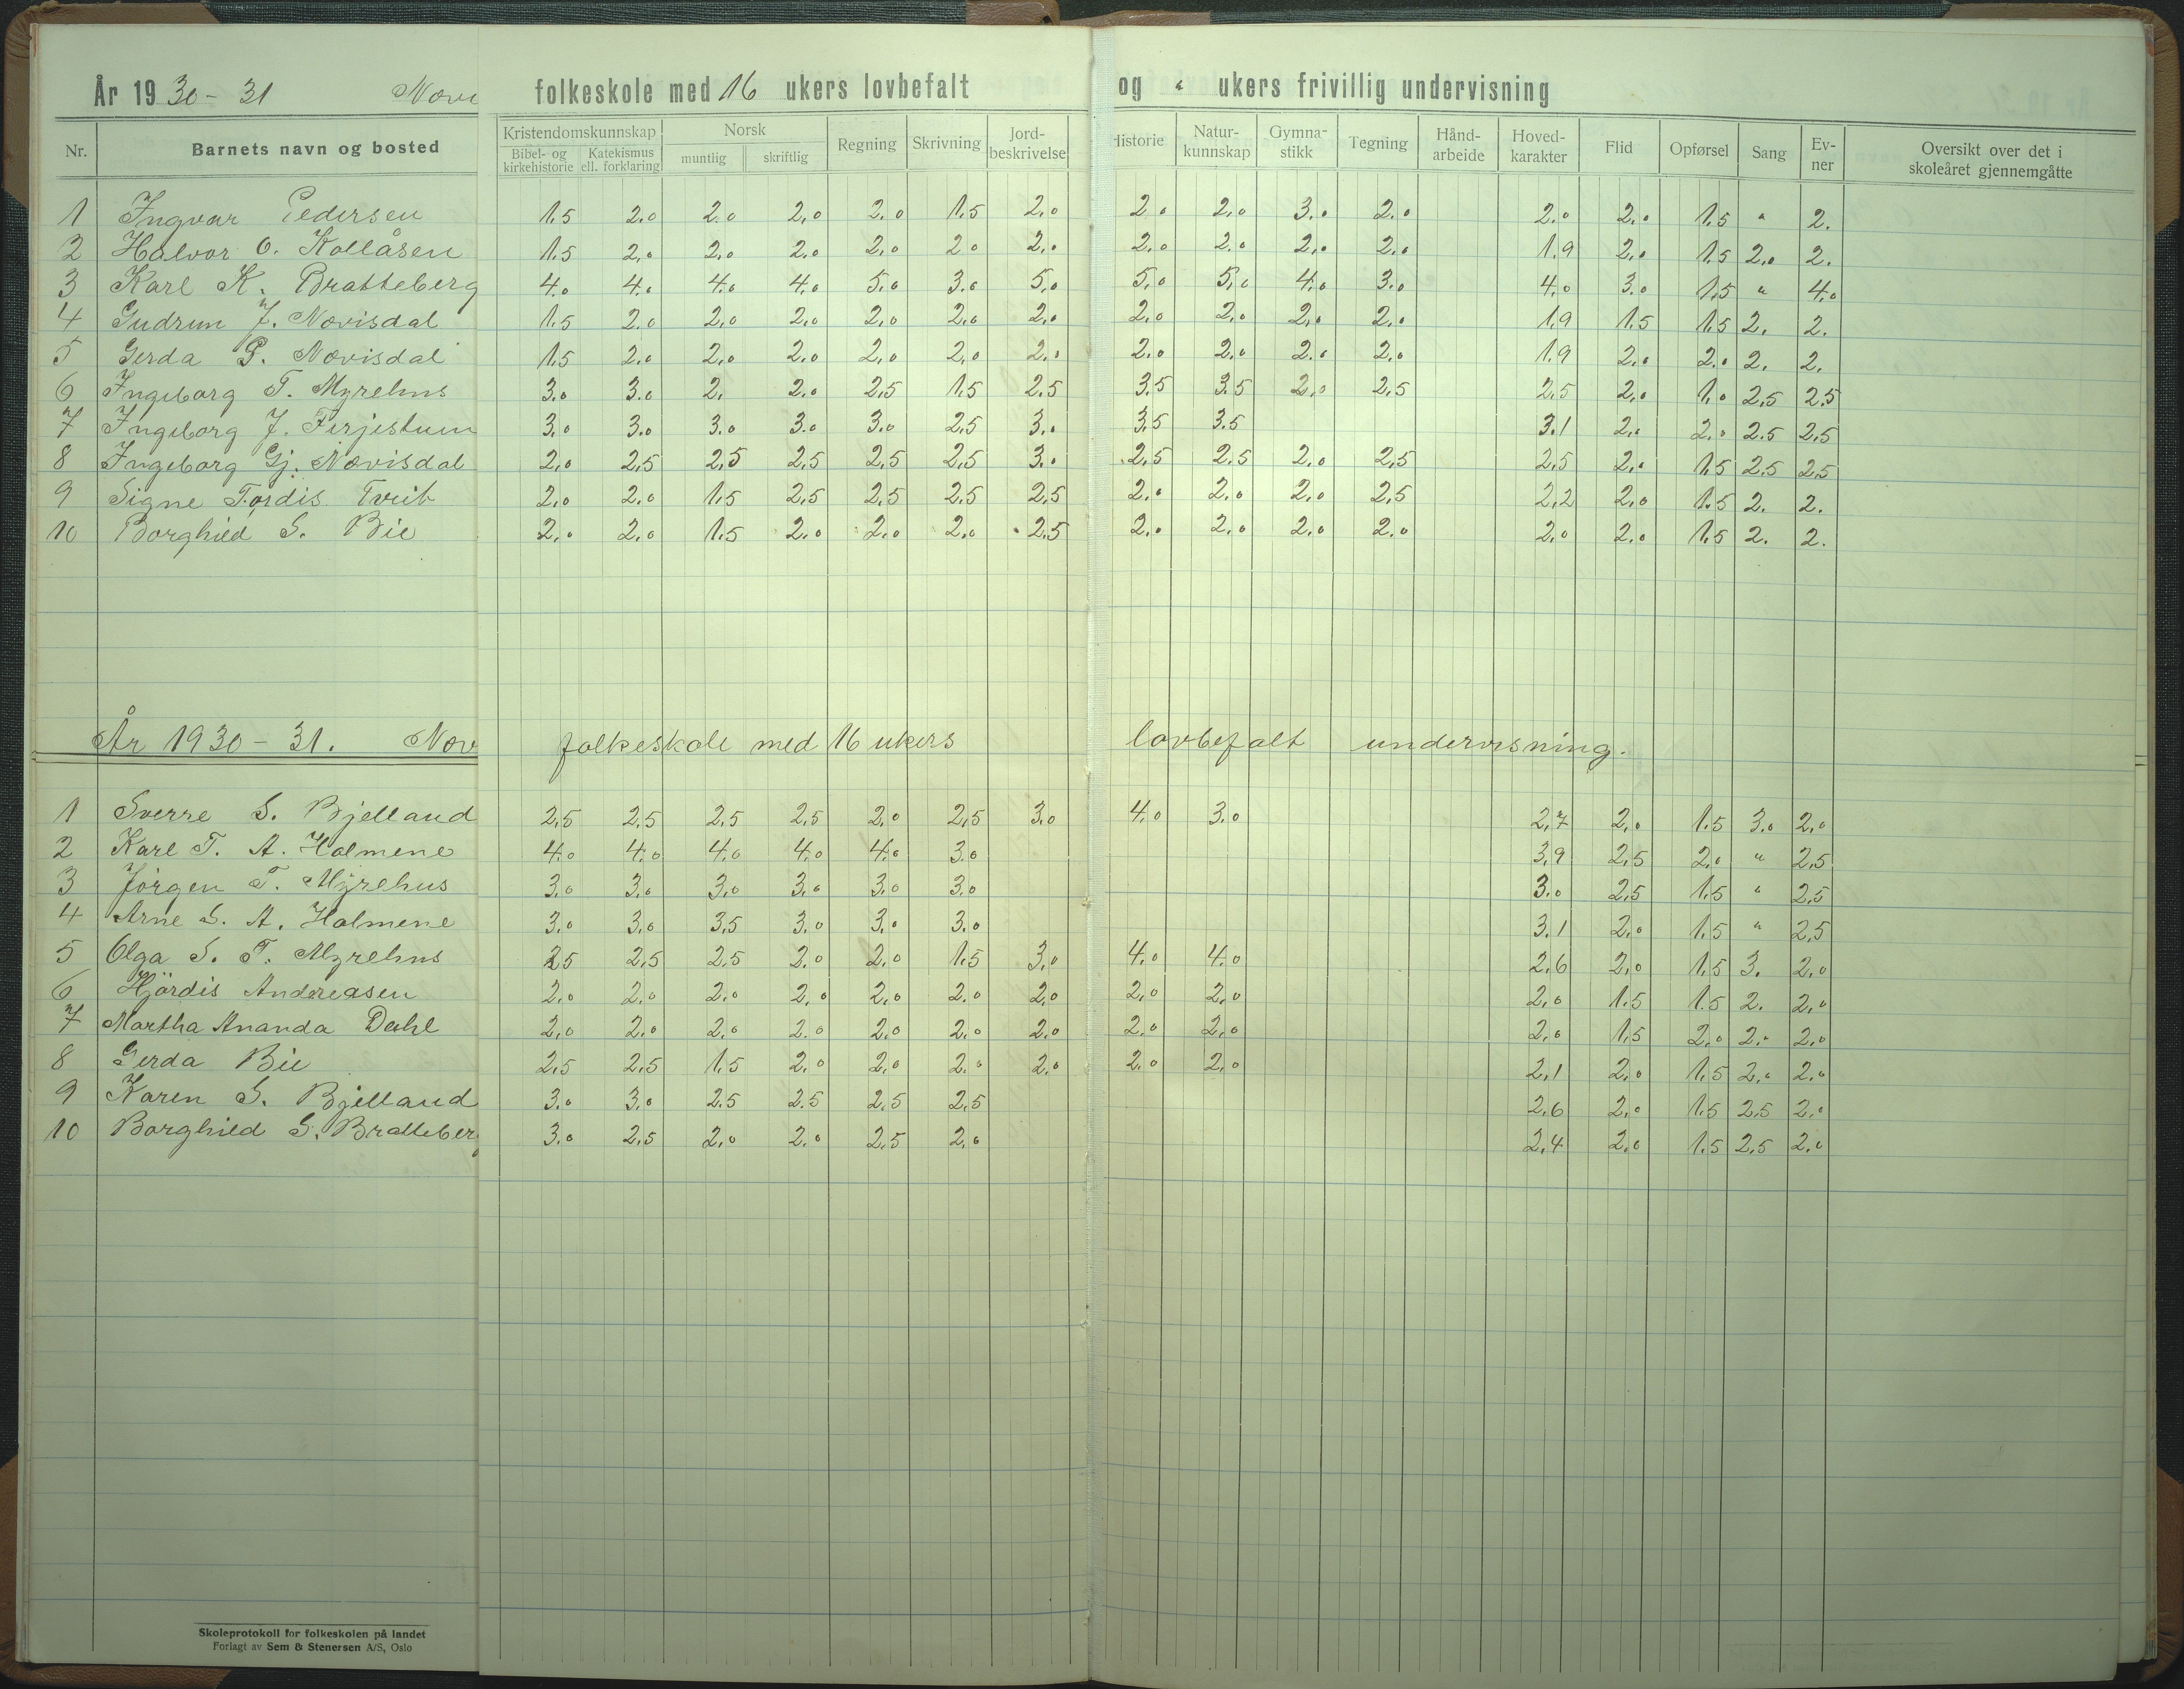 År 1930-31 Novi folkeskole med 16 ukers lovbefalt og " ukers frivillig undervisning
Nr. Barnets navn og bosted Kristendomskunnskap Bibel- og kirkehistorie Katekismus ell. forklaring Norsk muntlig skriftlig Regning Skrivning Jord-beskrivelse Historie Natur-kunnskap Gymna-stikk Tegning Hånd-arbeide Hoved-karakter Flid Opførsel Sang Ev-ner Oversikt over det i skoleåret gjennemgåtte
1 Ingvar Pedersen 1.5 2.0 2.0 2.0 2.0 1.5 2.0 2.0 2.0 3.0 2.0 2.0 2.0 1.5 " 2.
2 Halvor O. Kollåsen 1.5 2.0 2.0 2.0 2.0 2.0 2.0 2.0 2.0 2.0 2.0 1.9 2.0 1.5 2.0 2.
3 Karl K. Bratteberg 4.0 4.0 4.0 4.0 5.0 3.0 5.0 5.0 5.0 4.0 3.0 4.0 3.0 1.5 " 4.0
4 Gudrun J. Novisdal 1.5 2.0 2.0 2.0 2.0 2.0 2.0 2.0 2.0 2.0 2.0 1.9 1.5 1.5 2. 2.
5 Gerda P. Novisdal 1.5 2.0 2.0 2.0 2.0 2.0 2.0 2.0 2.0 2.0 2.0 1.9 2.0 2.0 2. 2.
6 Ingeborg T. Myrehus 3.0 3.0 2. 2.0 2.5 1.5 2.5 3.5 3.5 2.0 2.5 2.5 2.0 1.0 2.5 2.5
7 Ingeborg J. Ferjestuen 3.0 3.0 3.0 3.0 3.0 2.5 3.0 3.5 3.5 3.1 2.0 2.0 2.5 2.5
8 Ingeborg Gj. Novisdal 2.0 2.5 2.5 2.5 2.5 2.5 3.0 2.5 2.5 2.0 2.5 2.5 2.0 1.5 2.5 2.5
9 Signe Tordis Tveit 2.0 2.0 1.5 2.5 2.5 2.5 2.5 2.0 2.0 2.0 2.5 2.2 2.0 1.5 2. 2.
10 Borghild S. Bie 2.0 2.0 1.5 2.0 2.0 2.0 2.5 2.0 2.0 2.0 2.0 2.0 2.0 1.5 2. 2.
År 1930-31. Nov folkeskole med 16 ukers lovbefalt undervisning.
1 Sverre S. Bjelland 2.5 2.5 2.5 2.5 2.0 2.5 3.0 4.0 3.0 2.7 2.0 1.5 3.0 2.0
2 Karl T. A. Holmene 4.0 4.0 4.0 4.0 4.0 3.0 3.9 2.5 2.0 " 2.5
3 Jörgen T. Myrehus 3.0 3.0 3.0 3.0 3.0 3.0 3.0 2.5 1.5 " 2.5
4 Arne S. A. Holmene 3.0 3.0 3.5 3.0 3.0 3.0 3.1 2.0 1.5 " 2.5
5 Olga S. T. Myrehus 2.5 2.5 2.5 2.0 2.0 1.5 3.0 4.0 4.0 2.6 2.0 1.5 3. 2.0
6 Hjördis Andreasen 2.0 2.0 2.0 2.0 2.0 2.0 2.0 2.0 2.0 2.0 1.5 1.5 2. 2.0
7 Martha Ananda Dahl 2.0 2.0 2.0 2.0 2.0 2.0 2.0 2.0 2.0 2.0 1.5 2.0 2.0 2.0
8 Gerda Bie 2.5 2.5 1.5 2.0 2.0 2.0 2.0 2.0 2.0 2.1 2.0 1.5 2.0 2.0
9 Karen S. Bjelland 3.0 3.0 2.5 2.5 2.5 2.5 2.6 2.0 1.5 2.5 2.0
10 Borghild S. Bratteberg 3.0 2.5 2.0 2.0 2.5 2.0 2.4 2.0 1.5 2.5 2.0
Skoleprotokoll for folkeskolen på landet
Forlagt av Sem & Stenersen A/S, Oslo